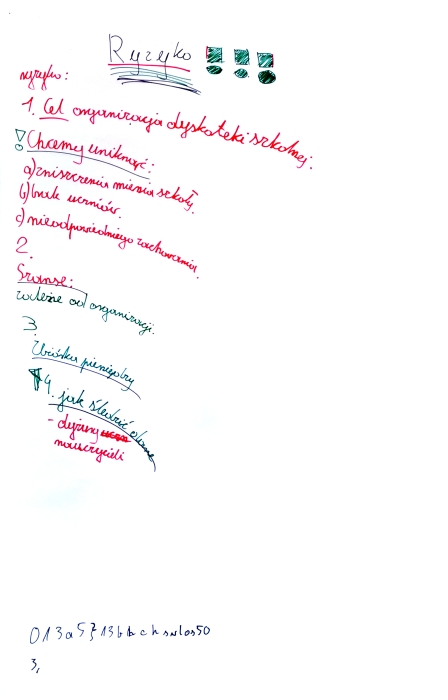 Ryzyko
ryzyko:
1. Cel organizacja dyskoteki szkolnej.
! Chcemy uniknąć:
a) zniszczenia mienia szkoły.
b) brak uczniów.
c) nieodpowiedniego zachowania.
2.
Szanse:
zależne od organizacji.
3
Zbiórka pieniędzy
4. jak śledzić
- dyżury
nauczycieli
3,